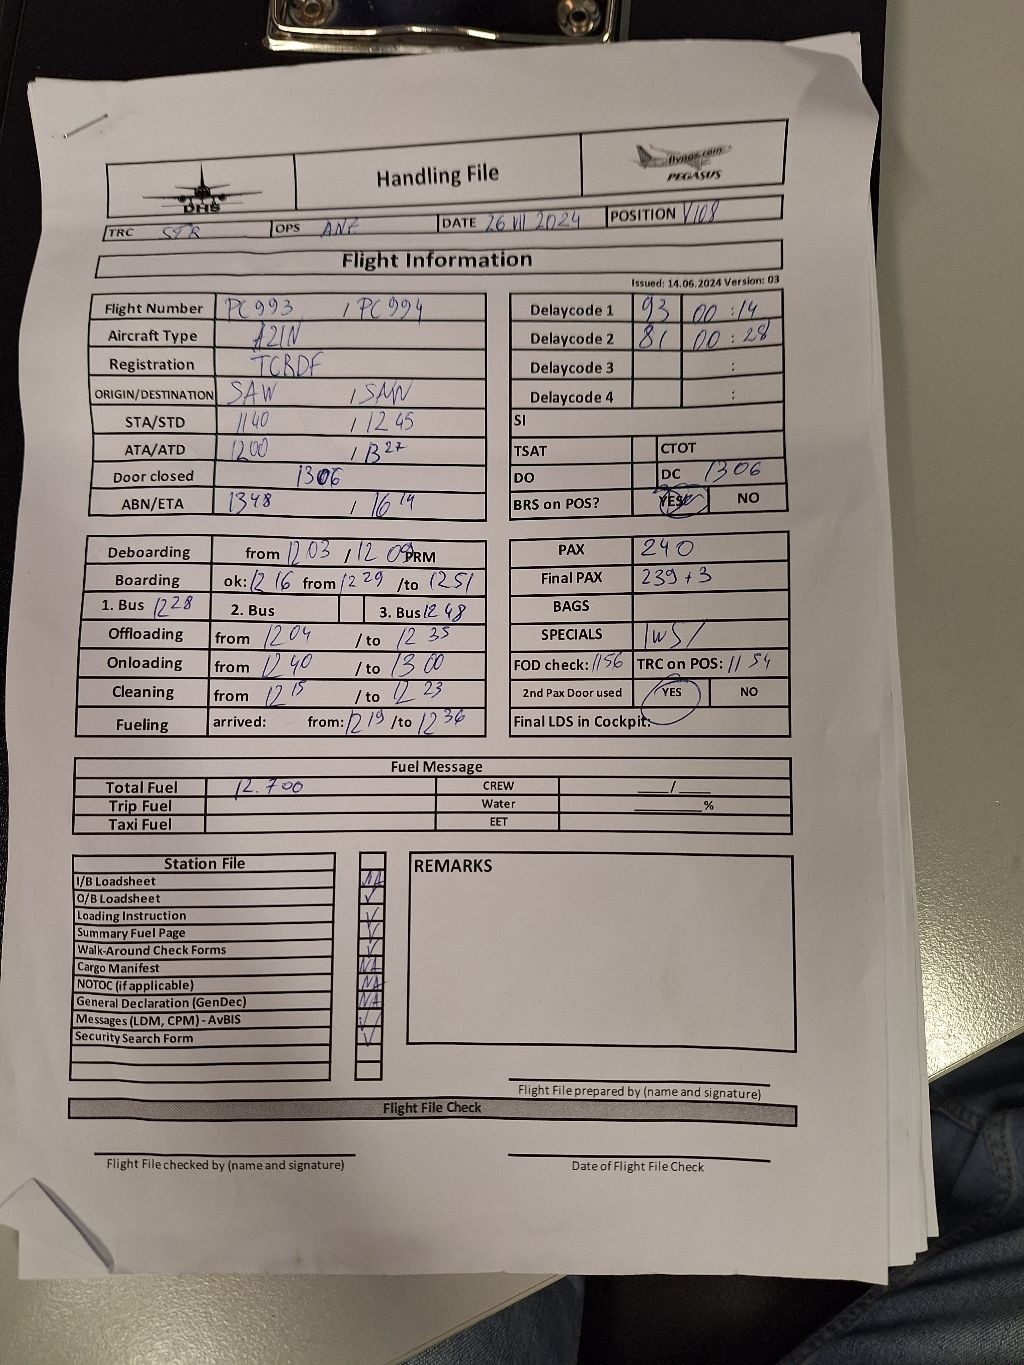 DHS
Handling File
flypgs.com
PEGASUS
TRC STR OPS ANE DATE 26 VII 2024 POSITION V108
Flight Information
Issued: 14.06.2024 Version: 03
Flight Number PC993 / PC994
Aircraft Type A21N
Registration TCRDF
ORIGIN/DESTINATION SAW / SAW
STA/STD 1140 / 1245
ATA/ATD 1200 / 1327
Door closed 1306
ABN/ETA 1348 / 1614
Delaycode 1 93 00 : 14
Delaycode 2 81 00 : 28
Delaycode 3 :
Delaycode 4 :
SI
TSAT CTOT
DO DC 1306
BRS on POS? YES NO
Deboarding from 1203 / 1209 PRM
Boarding ok: 1216 from 1229 /to 1251
1. Bus 1228 2. Bus 3. Bus 1248
Offloading from 1204 / to 1235
Onloading from 1240 / to 1300
Cleaning from 1215 / to 1223
Fueling arrived: from: 1219 /to 1236
PAX 240
Final PAX 239+3
BAGS
SPECIALS
FOD check: 1156 TRC on POS: 1154
2nd Pax Door used YES NO
Final LDS in Cockpit:
Fuel Message
Total Fuel 12.700 CREW ___/___
Trip Fuel Water _______%
Taxi Fuel EET
Station File
I/B Loadsheet NA
O/B Loadsheet ✓
Loading Instruction ✓
Summary Fuel Page ✓
Walk-Around Check Forms ✓
Cargo Manifest NA
NOTOC (if applicable) NA
General Declaration (GenDec) NA
Messages (LDM, CPM) - AvBIS ✓
Security Search Form ✓
REMARKS
Flight File prepared by (name and signature)
Flight File Check
Flight File checked by (name and signature)
Date of Flight File Check